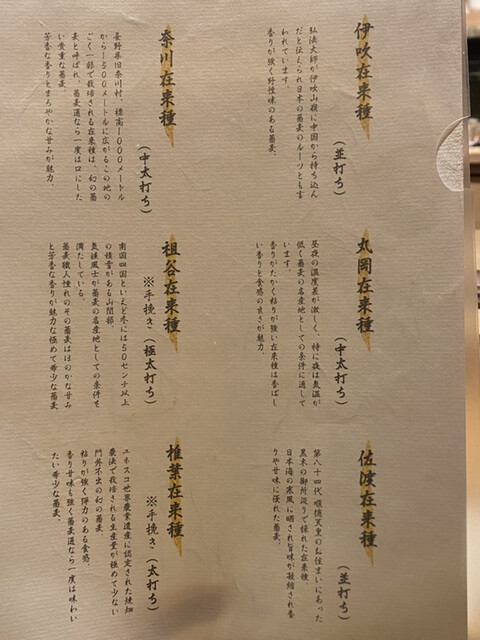 伊吹在来種
（並打ち）
弘法大師が伊吹山麓に中国から持ち込ん
だと伝えられ日本の蕎麦のルーツとも言
われています。
香りが強く野性味のある蕎麦。
丸岡在来種
（中太打ち）
昼夜の温度差が激しく、特に夜は気温が
低く蕎麦の名産地としての条件に適して
います。
香りがたかく粘りが強い在来種は香ばし
い香りと食感の良さが魅力。
佐渡在来種
（並打ち）
第八十四代 順徳天皇のお住まいにあった
黒木の御所辺りで採れた在来種。
日本海の寒風に晒され旨味が凝縮され香
りや甘味に優れた蕎麦。
奈川在来種
（中太打ち）
長野県旧奈川村、標高1000メートル
から1500メートルに広がるこの地の
ごく一部で栽培される在来種は、幻の蕎
麦と呼ばれ、蕎麦通なら一度は口にした
い貴重な蕎麦。
芳香な香りとまろやかな甘みが魅力。
祖谷在来種
※手挽き（極太打ち）
南国四国といえど冬には50センチ以上
の積雪がある山間部。
気候風土が蕎麦の名産地としての条件を
満たしている。
蕎麦職人憧れのその蕎麦はほのかな甘み
と芳香な香りが魅力な極めて希少な蕎麦
椎葉在来種
※手挽き（太打ち）
ユネスコ世界農業遺産に認定された焼畑
農法で栽培される生産量が極めて少ない
門外不出の幻の蕎麦。
粘りが強く弾力のある食感。
香り甘味も強く蕎麦通なら一度は味わい
たい希少な蕎麦。